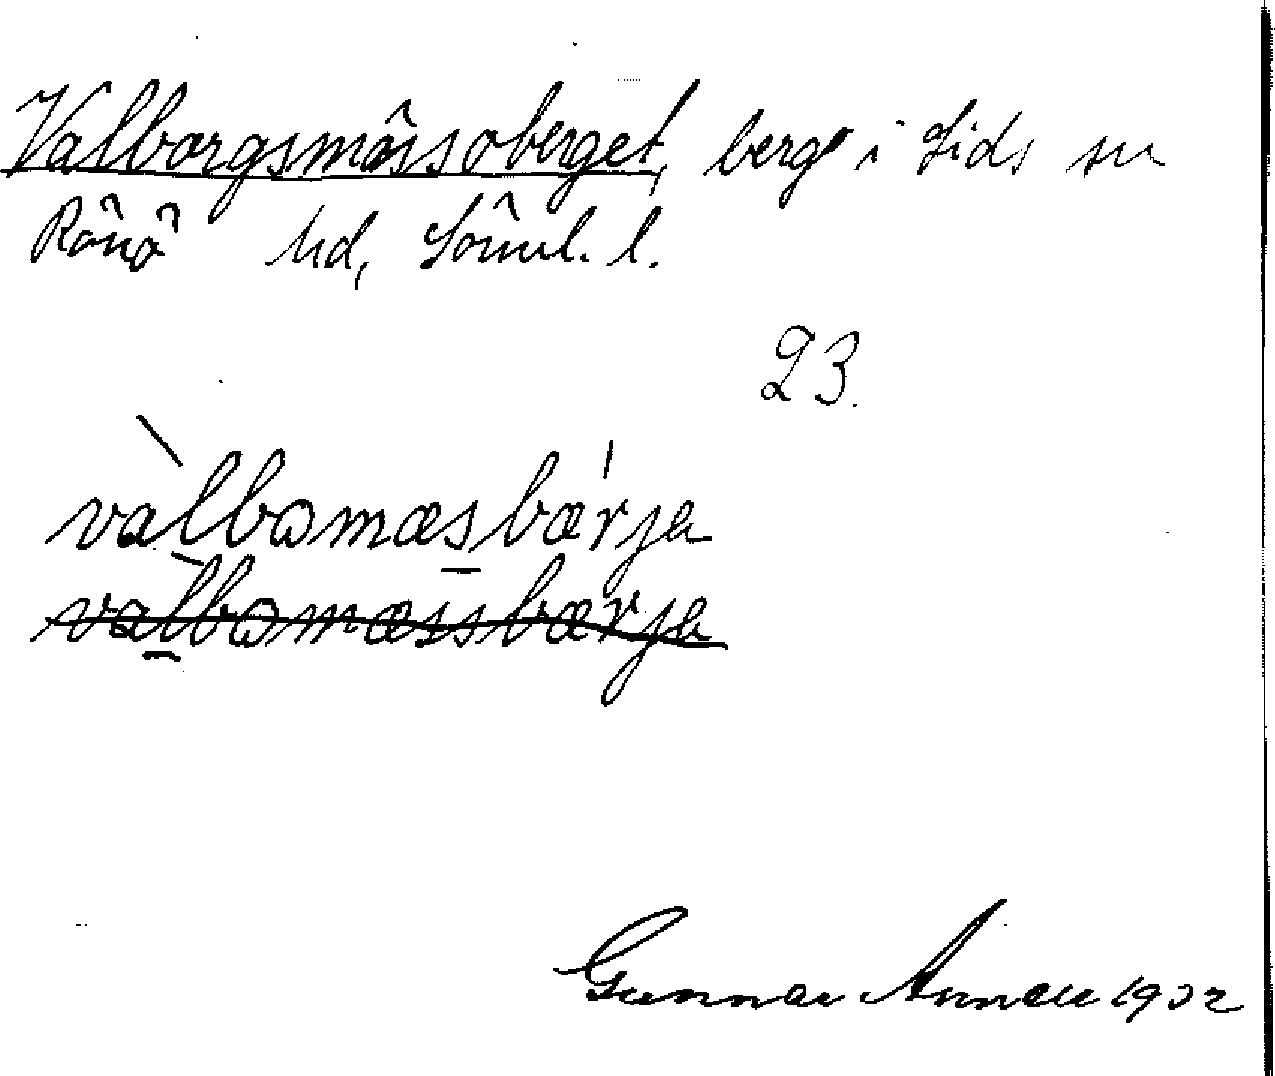 Valborgsmässoberget, berg i Lids sn
Rönö hd, Söml. l.
23.
valbomæsbærja
valbomæssbærja
Gunnar 1932